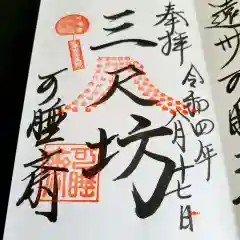 奉拝
令和四年
八月十七日
三尺坊
可睡斎
遠州